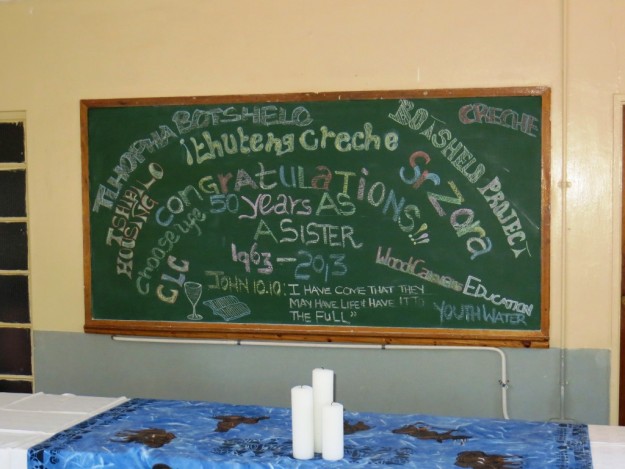 TLHOPHA BOTSHELO
iThuteng Creche
BOTSHELO PROJECT
CRECHE
TSHIPI LO HOUSING
Choose life
CLC
CONGRATULATIONS!!!
Sr Zora
50 years AS
A SISTER
1963-2013
Wood Carvers
EDUCATION
YOUTH WATER
JOHN 10.10: I HAVE COME THAT THEY
MAY HAVE LIFE & HAVE IT TO
THE FULL"